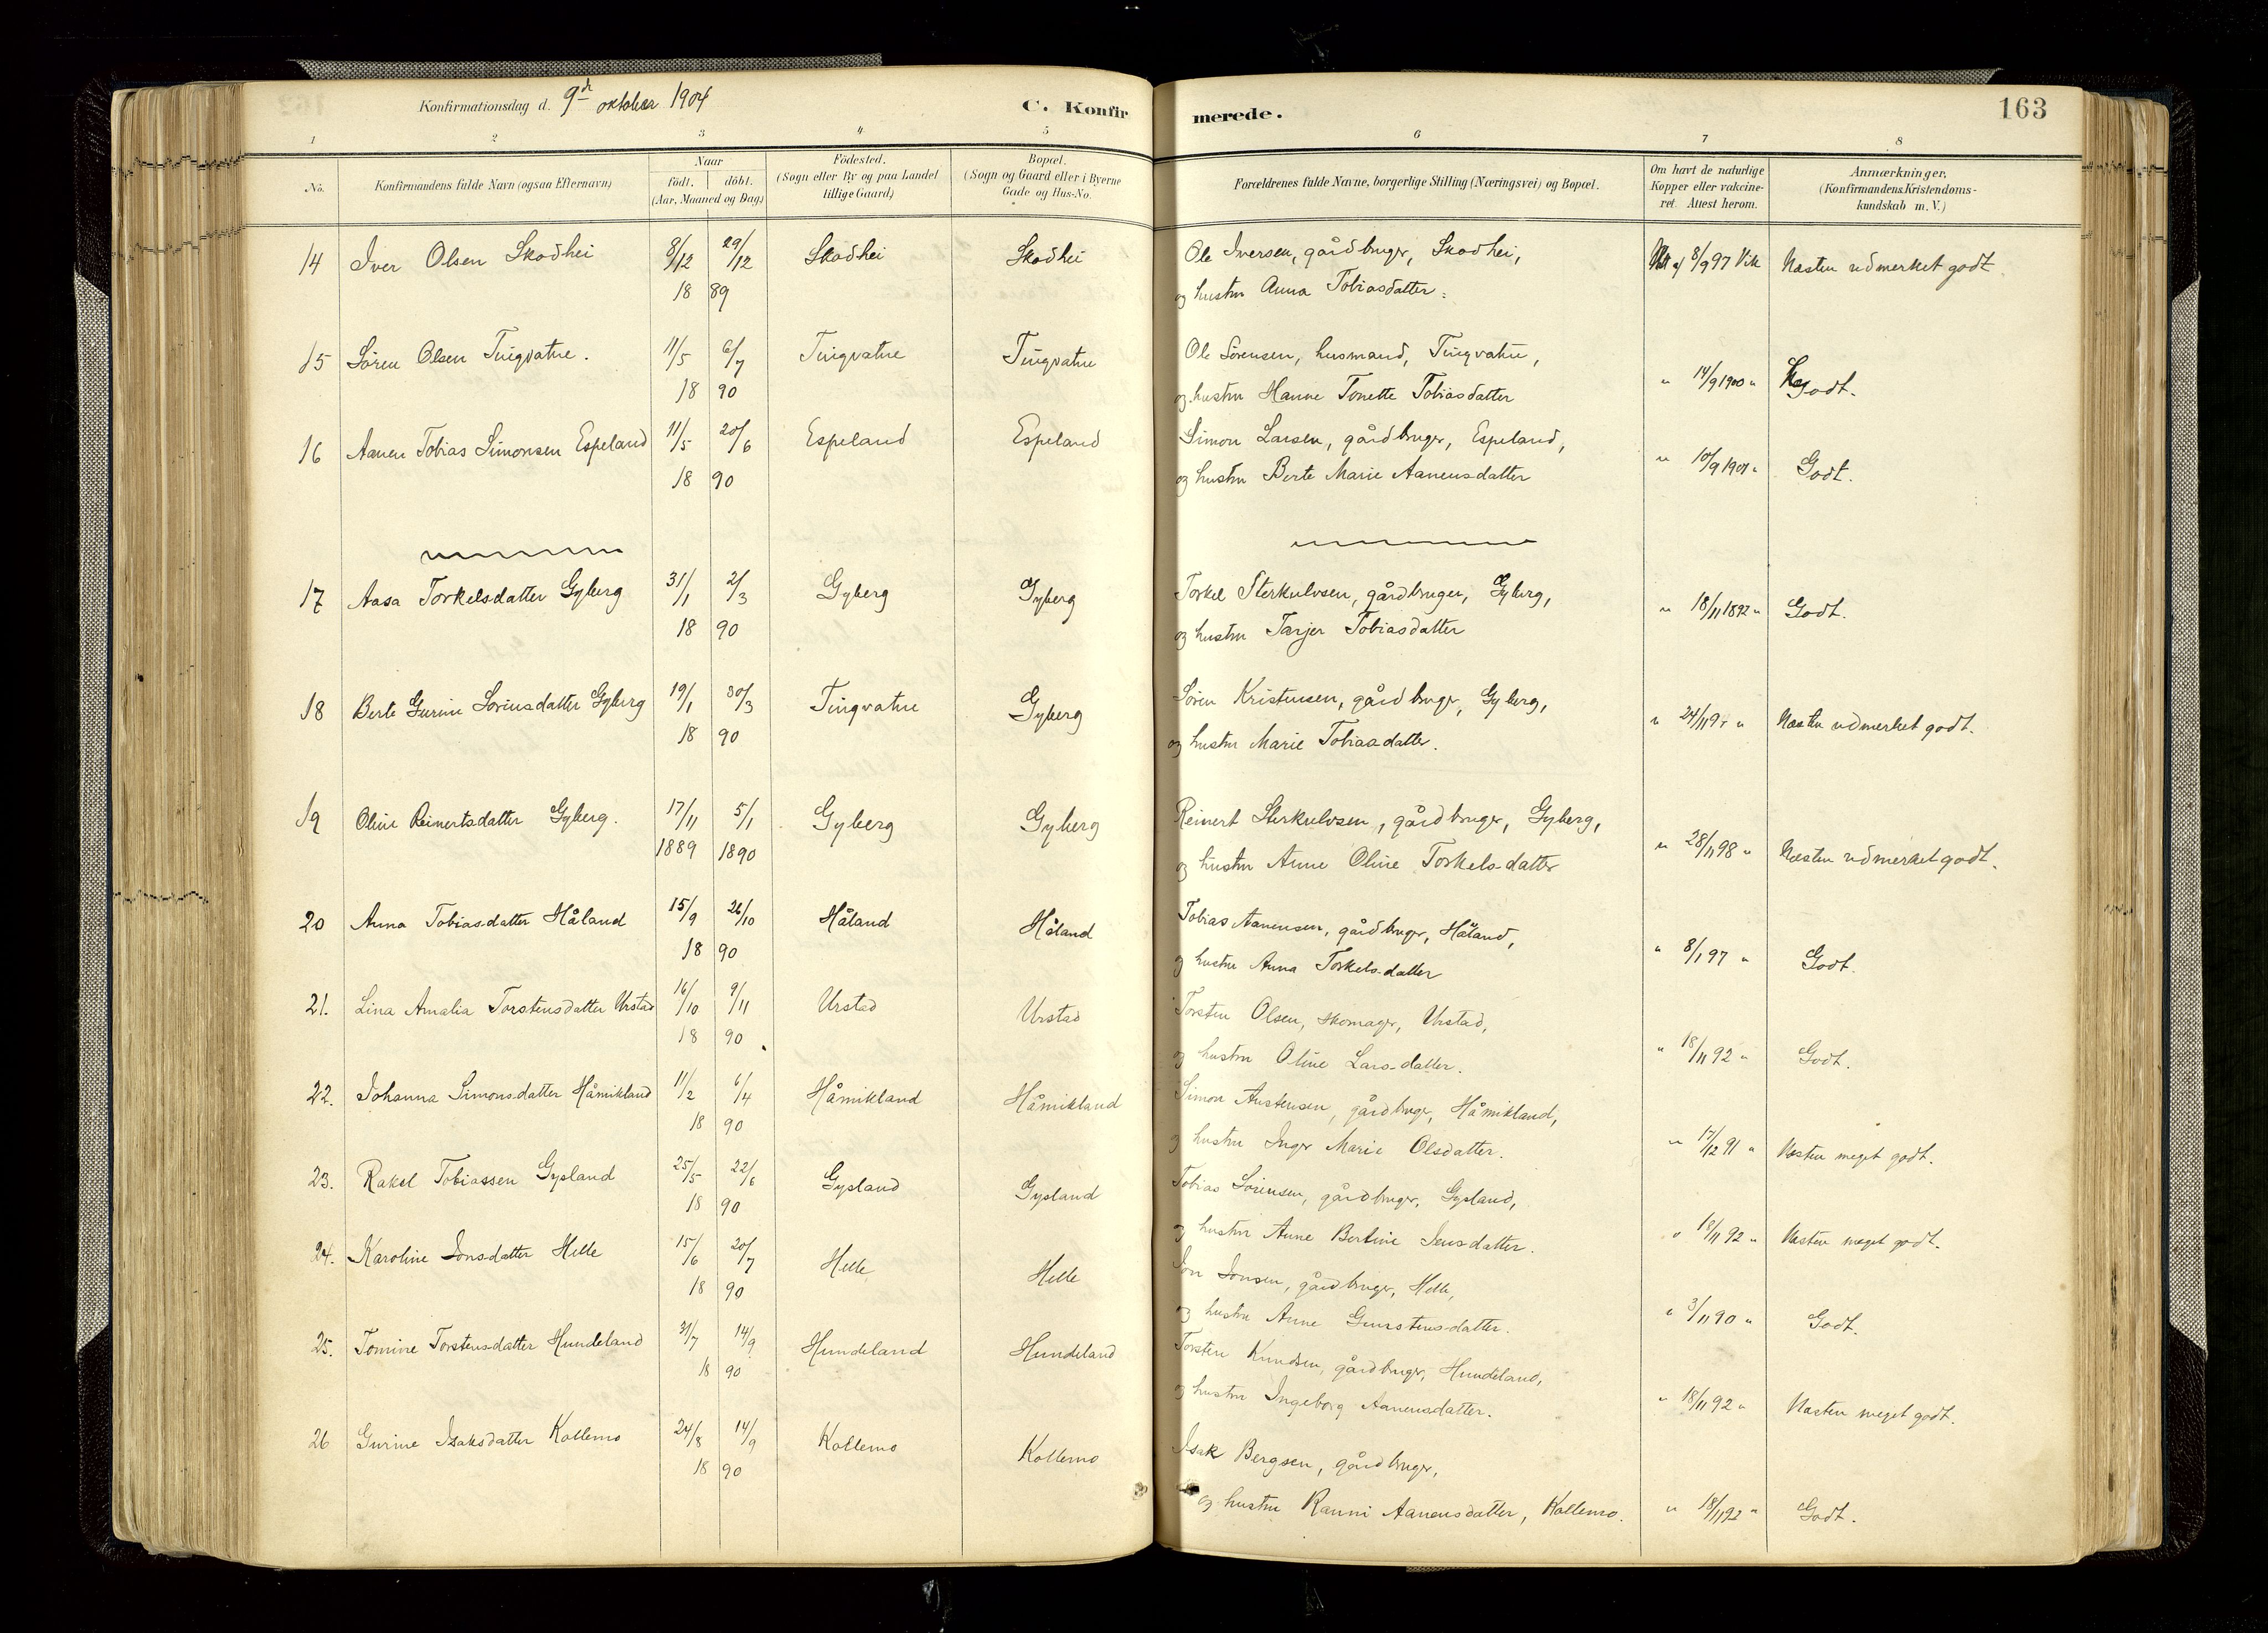 Konfirmationsdag d. 9de oktober 1904 C. Konfirmerede. 163
1 2 3 4 5 6 7 8
No. Konfirmandens fulde Navn (ogsaa Efternavn) Naar født. døbt. (Aar, Maaned og Dag) Fødested. (Sogn eller By og paa Landet tillige Gaard) Bopæl. (Sogn og Gaard eller i Byerne Gade og Hus-No. Forældrenes fulde Navne, borgerlige Stilling (Næringsvei) og Bopæl. Om havt de naturlige Kopper eller vakcineret. Attest herom. Anmærkninger, (Konfirmandens Kristendomskundskab m. V.)
14 Iver Olsen Skodhei 8/12 29/12 Skodhei Skodhei Ole Iversen, gårdbruger, Skodhei, 8/9 97 Vik Næsten udmerket godt
18 89 og hustru Anna Tobiasdatter.
15 Sören Olsen Tingvatne. 11/5 6/7 Tingvatne Tingvatne Ole Sörensen, husmand, Tingvatne,
18 90 og hustru Hanne Tonette Tobiasdatter " 14/9 1900 " Godt.
16 Aanen Tobias Simonsen Espeland 11/5 20/6 Espeland Espeland Simon Larsen, gårdbruger, Espeland,
18 90 og hustru Berte Marie Aanensdatter " 10/9 1901 " Godt.
17 Aasa Torkelsdatter Gyberg 31/1 2/3 Gyberg Gyberg Torkel Sterkulvsen, gårdbruger, Gyberg,
18 90 og hustru Tarjer Tobiasdatter " 18/11 1892 " Godt.
18 Berte Gurine Sörensdatter Gyberg 19/1 30/3 Tingvatne Gyberg Sören Kristensen, gårdbruger, Gyberg,
18 90 og hustru Marie Tobiasdatter. " " Næsten udmerket godt.
19 Oline Reinertsdatter Gyberg. 17/11 5/1 Gyberg Gyberg Reinert Sterkulvsen, gårdbruger, Gyberg,
1889 1890 og hustru Anne Oline Torkelsdatter " 28/11 98 " Næsten udmerket godt.
20 Anna Tobiasdatter Håland 15/9 26/10 Håland Håland Tobias Aanensen, gårdbruger, Håland,
18 90 og hustru Anna Torkelsdatter " 8/1 97 " Godt.
21. Lina Amalia Torstensdatter Urstad 16/10 9/11 Urstad Urstad Torsten Olsen, skomager, Urstad,
18 90 og hustru Oline Larsdatter. " 18/11 92 " Godt.
22. Johanna Simonsdatter Håmikland 11/2 6/4 Håmikland Håmikland Simon Austensen, gårdbruger, Håmikland,
18 90 og hustru Inger Marie Olsdatter. " 17/12 91 " Næsten meget godt.
23. Rakel Tobiassen Gysland 25/5 22/6 Gysland Gysland Tobias Sörensen, gårdbruger, Gysland,
18 90 og hustru Anne Bertine Jensdatter. " 18/11 92 " Næsten meget godt.
24. Karoline Jonsdatter Helle 15/6 20/7 Helle Helle Jon Jonsen, gårdbruger, Helle,
18 90 og hustru Anne Gunstensdatter. " 3/11 90 " Godt.
25. Tomine Torstensdatter Hundeland 31/7 14/9 Hundeland Hundeland Torsten Knudsen, gårdbruger, Hundeland,
18 90 og hustru Ingeborg Aanensdatter. " 18/11 92 " Næsten meget godt.
26 Gurine Isaksdatter Kollemo 24/8 14/9 Kollemo Kollemo Isak Bergsen, gårdbruger,
18 90 og hustru Ranni Aanensdatter, Kollemo. " 18/11 92 " Godt.